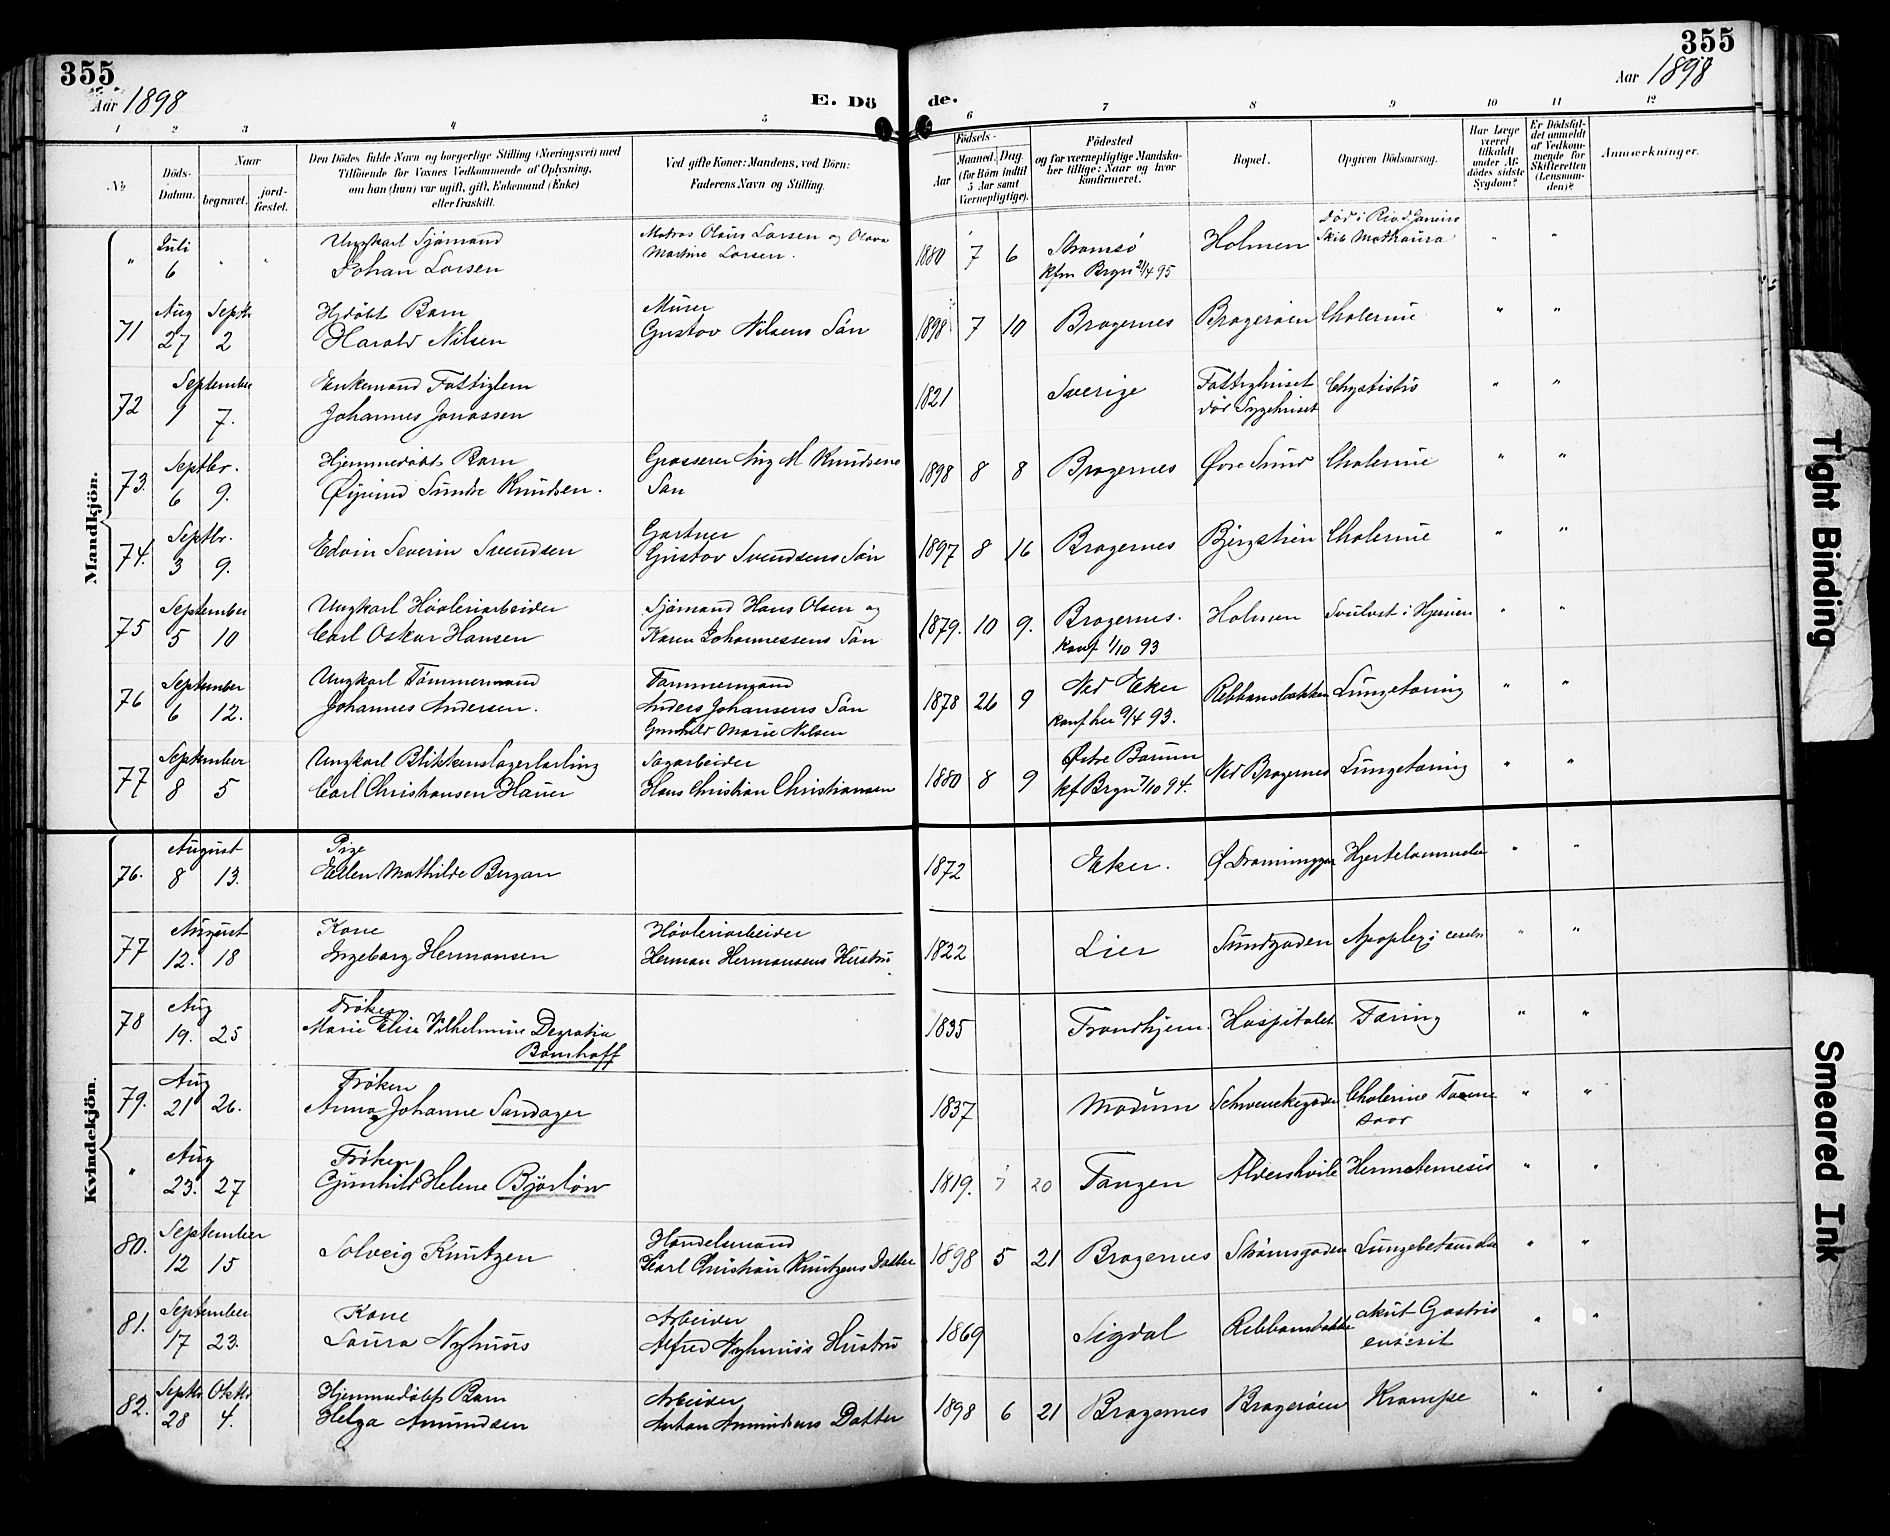 355
Aar 1898
E. Dö
de.
355
Aar 1898
1 2 3 4 5 6 7 8 9 10 11 12
№
Döds-Datum.
Naar
begravet.
jord-fæstet.
Den Dödes fulde Navn og borgerlige Stilling (Næringsvei) med
Tilföiende for Voxnes Vedkommende af Oplysning,
om han (hun) var ugift, gift, Enkemand (Enke)
eller fraskilt.
Ved gifte Koner: Mandens, ved Börn:
Faderens Navn og Stilling.
Födsels-
Aar
Maaned. Dag.
(for Börn indtil
5 Aar samt
Værnepligtige).
Födested
og for værnepligtige Mandska-
ber tillige: Naar og hvor
konfirmeret.
Bopæl.
Opgiven Dödsaarsag.
Har Læge
været
tilkaldt
under Af-
dödes sidste
Sygdom?
Er Dödsfal-
det anmeldt
af Vedkom-
mende for
Skifteretten
(Lensman-
den)?
Anmærkninger.
Mandkjön.
" Juli 6 " " Ungkarl Sjömand
Johan Larsen
Matros Olaus Larsen og Olava
Martine Larsen.
1880 7 6 Strømsø
kfm Bragn 21/4 95
Holmen
død i Rio d Janeiro
Skib
" "
71 Aug 27 Septb 2 Hjdöbt Barn
Harald Nilsen
Murer
Gustav Nilsens Søn
1898 7 10 Bragernes Bragerøen Cholerine " "
72 September 1 7. Enkemand Fattiglem
Johannes Jonassen
1821 Sverige Fattighuset
død Sygehuset
" "
73. Septbr. 6 9. Hjemmedöbt Barn
Øivind Sunde Knudsen.
Grosserer Aug M Knudsens
Søn
1898 8 8 Bragernes Øvre Sund Cholerine " "
74. Septbr. 3 9. Edvin Severin Svendsen
Gartner
Gustav Svendsens Søn
1897 8 16 Bragernes Bjergstien Cholerine " "
75 September 5 10 Ungkarl Høvleriarbeider
Carl Oskar Hansen
Sjømand Hans Olsen og
Karen Johannessens Søn
1879. 10 9. Bragernes.
konf 1/10 93
Holmen Svulst i Hjernen " "
76 September 6 12. Ungkarl Tømmermand
Johannes Andersen.
Tømmermand
Anders Johansens Søn
Gunhild Marie Nilsen
1878 26 9 Ned Eker
konf her 9/4 93.
Ribbansbakken Lungetæring " "
77 September 8 5 Ungkarl Blikkenslagerlærling
Carl Christiansen Hauer
Sagarbeider
Hans Christian Christiansen
1880 8 9 Østre Bærum
kf Bragn 7/10 94.
Ned Bragernes Lungetæring " "
Kvindekjön.
76. August 8 13. Pige
Ellen Mathilde Bergan
1872 Eker. Hjertelammelse " "
77 August 12. 18 Kone
Ingeborg Hermansen
Høvleriarbeider
Herman Hermansens Hustru
1822 Lier Sundgaden Apoplexi cerebr " "
78 Aug 19. 25 Frøken
Marie Elise Vilhelmine Degratia
Bomhoff
1835 Trondhjem. Hospitalet Tæring " "
79. Aug 21 26. Frøken
Anna Johanne Sandager
1837 Modum Schwenckegaden Cholerine " "
" Aug 23. 27 Frøken
Gunhild Helene Bjørløw
1819. 7 20 Tangen Aldershvile " "
80. September 12 15 Solveig Knutzen
Handelsmand
Karl Christian Knutzens Datter
1898 5 21 Bragernes Strømsgaden Lungebetændelse " "
81. September 17 23. Kone
Laura Nyhuus
Arbeider
Alfred Nyhuus's Hustru
1869 Sigdal Ribbansbakke akut Gastro
enterit
" "
82. Septbr 28 Oktbr 4. Hjemmedöbt Barn
Helga Amundsen
Arbeider
Anton Amundsens Datter
1898 6 21 Bragernes Bragerøen Krampe " "
Tight Binding
Smeared Ink